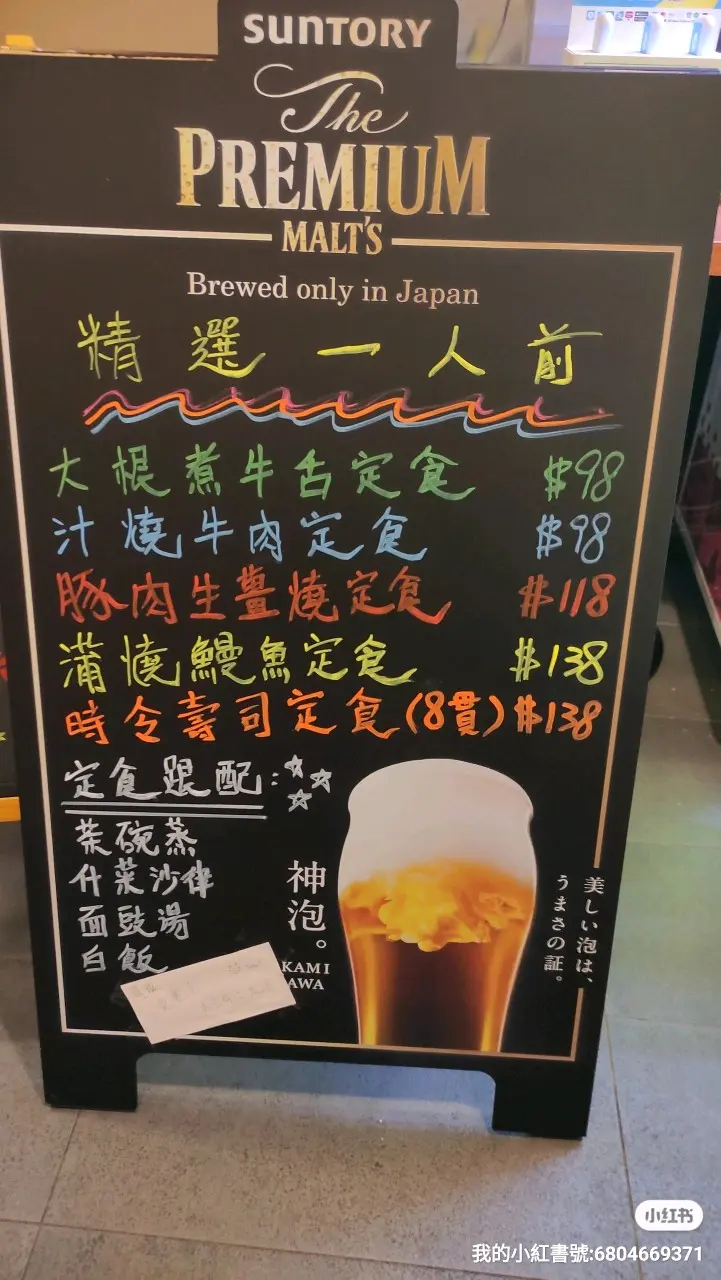 SUNTORY
The
PREMIUM
MALT'S
Brewed only in Japan
精選一人前
大根煮牛舌定食 $98
汁燒牛肉定食 $98
豚肉生薑燒定食 $118
蒲燒鰻魚定食 $138
時令壽司定食(8貫) $138
定食跟配:
茶碗蒸
什菜沙律
面豉湯
白飯
神泡。
KAMI
AWA
美しい泡は、
うまさの証。
小红书
我的小紅書號:6804669371